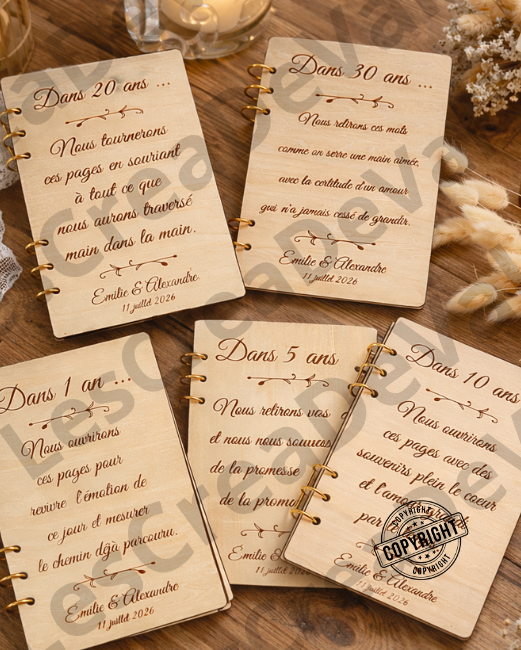 Dans 20 ans ...
Nous tournerons
ces pages en souriant
à tout ce que
nous aurons traversé
main dans la main.
Emilie & Alexandre
11 juillet 2026
Dans 30 ans ...
Nous relirons ces mots
comme on serre une main aimée,
avec la certitude d'un amour
qui n'a jamais cessé de grandir.
Emilie & Alexandre
11 juillet 2026
Dans 1 an ...
Nous ouvrirons
ces pages pour
revivre l'émotion de
ce jour et mesurer
le chemin déjà parcouru.
Emilie & Alexandre
11 juillet 2026
Dans 5 ans
Nous relirons vos
et nous nous
de la promesse
de la
Emilie &
11 juillet
Dans 10 ans ...
Nous ouvrirons
ces pages avec des
souvenirs plein le coeur
et
par
Emilie & Alexandre
11 juillet 2026
COPYRIGHT
COPYRIGHT
COPYRIGHT
LesCreaDeVa